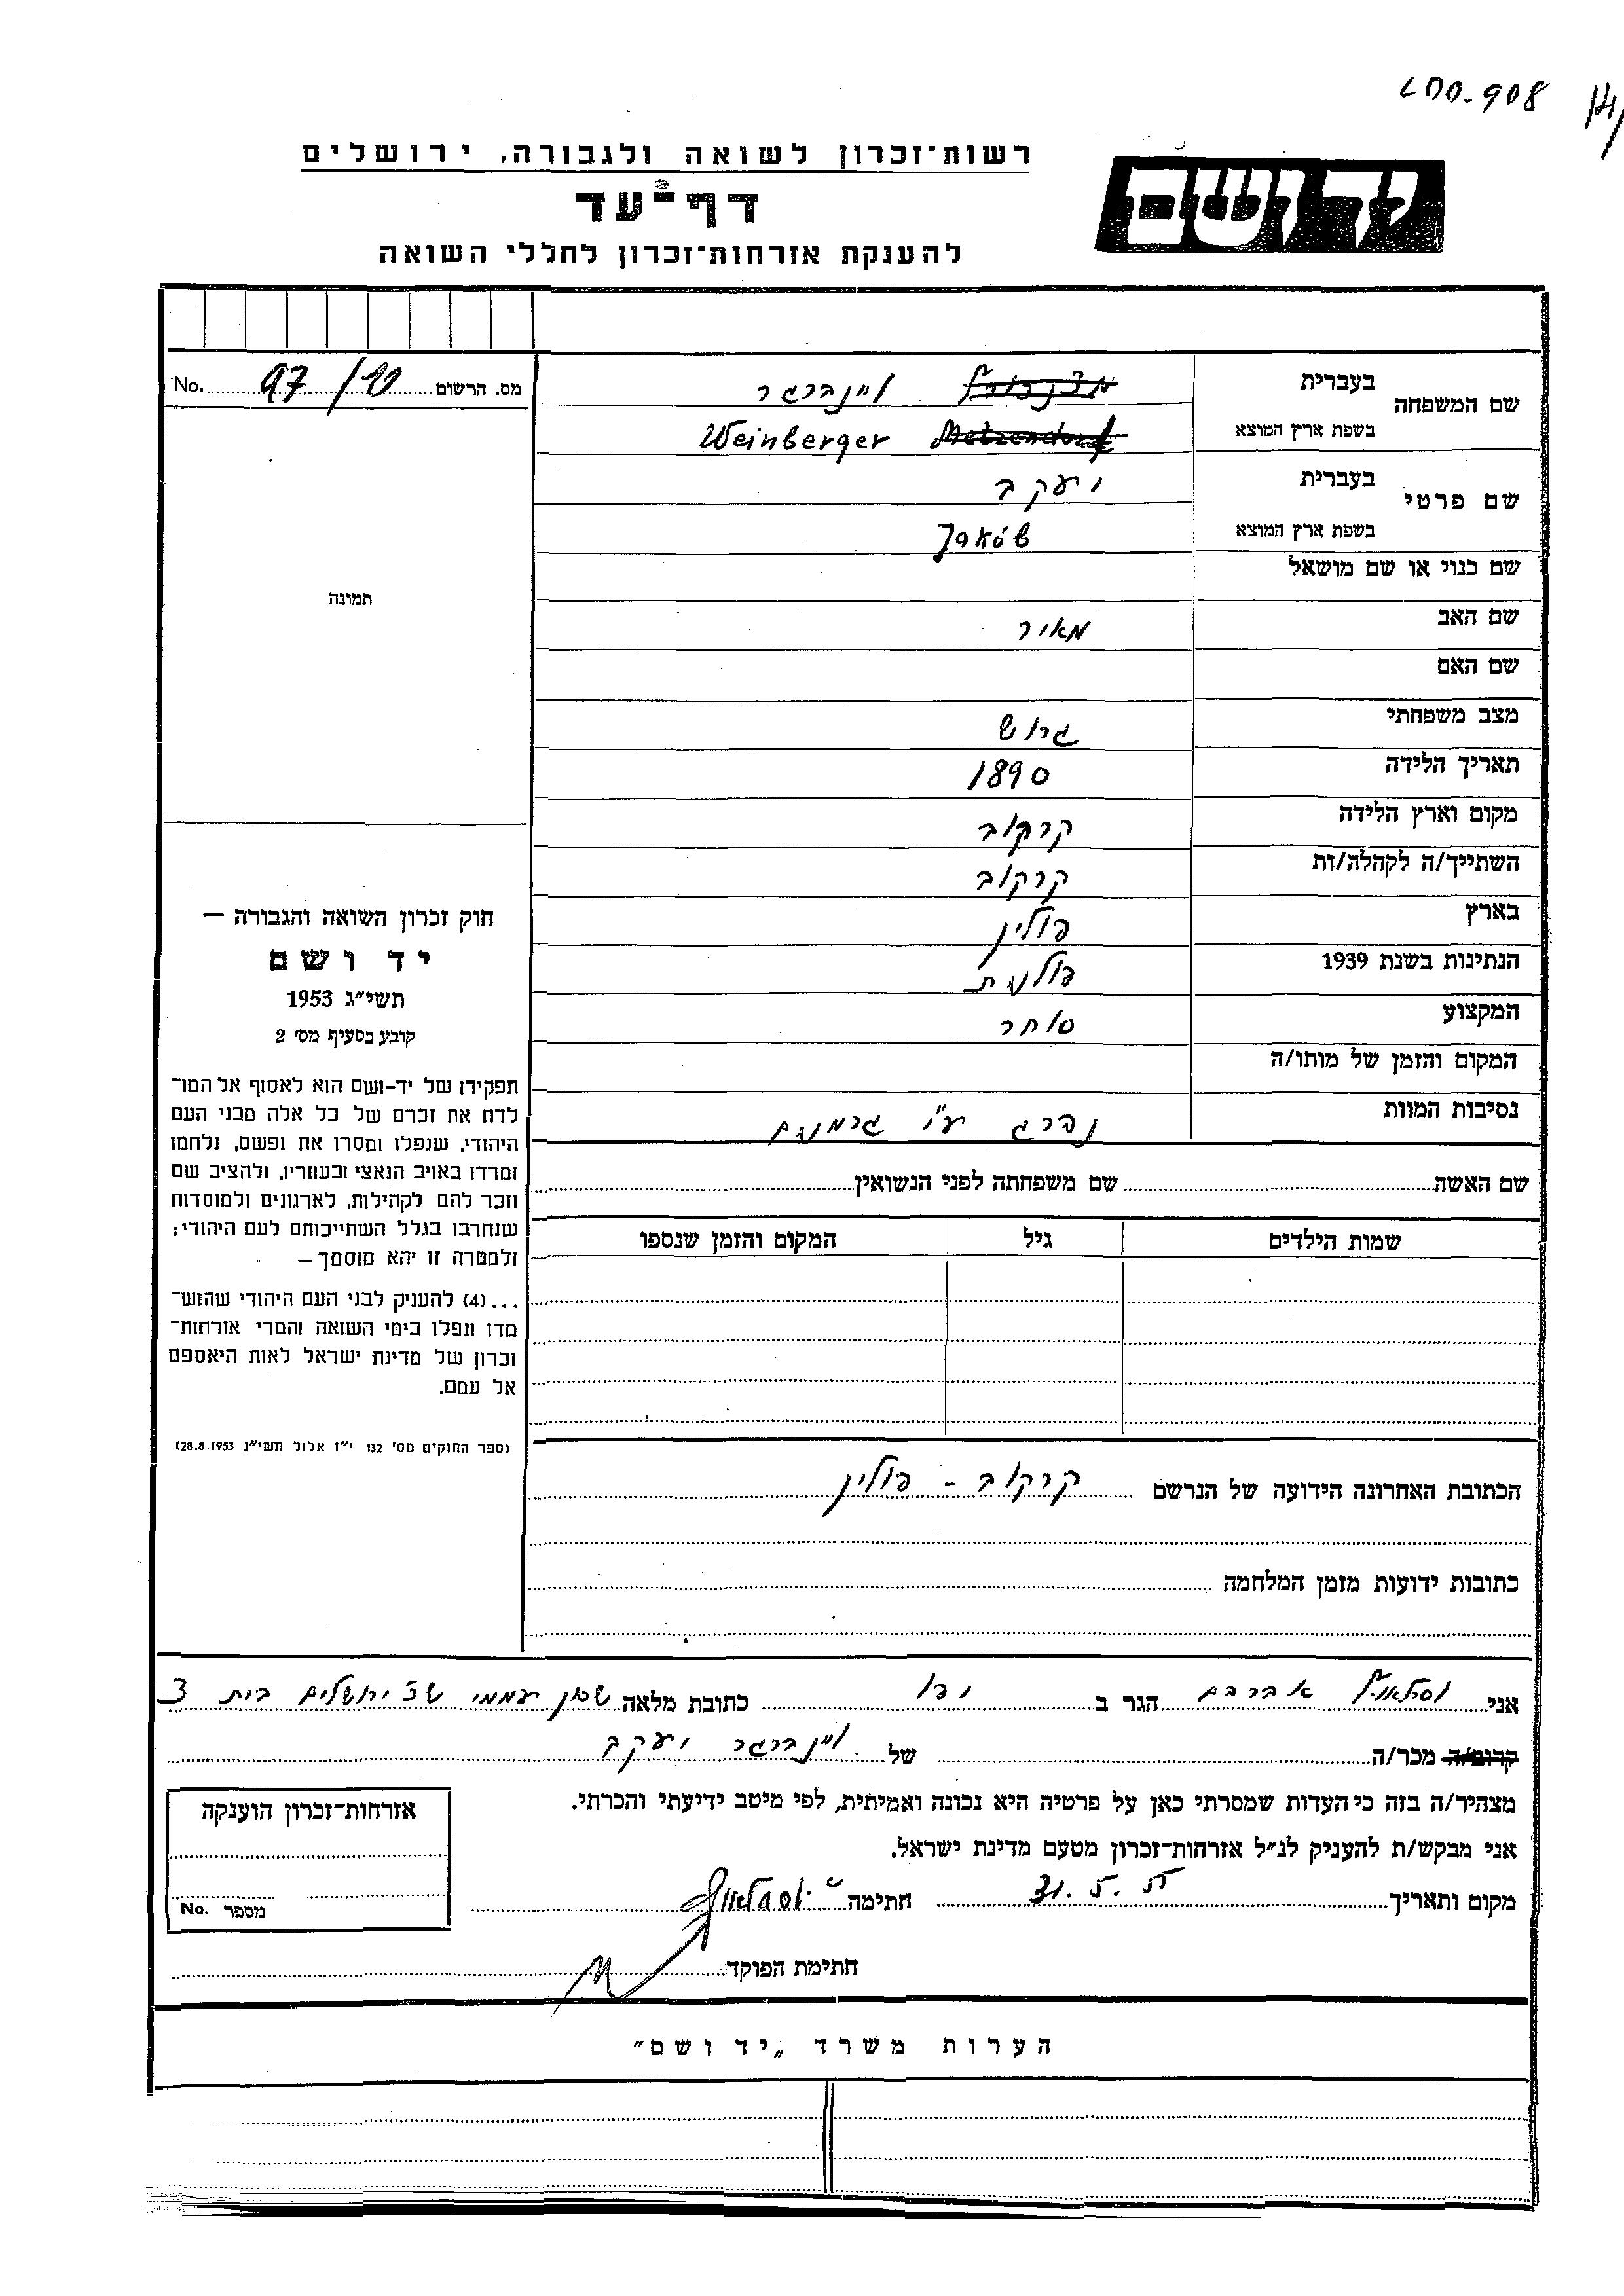 908-
רשות־זכרון לשואה ולגבורה, ירושלים
יד ושם
דף־עד
להענקת אזרחות־זכרון לחללי השואה
מס. הרשום No. 97/
שם המשפחה
בעברית ויינברגר
בשפת ארץ המוצא Metzendorf Weinberger
שם פרטי
בעברית יעקב
בשפת ארץ המוצא Jakób
שם כנוי או שם מושאל
שם האב מאיר
שם האם
מצב משפחתי גרוש
תאריך הלידה 1890
מקום וארץ הלידה קרקוב
השתייך/ה לקהלה/ות קרקוב
בארץ פולין
הנתינות בשנת 1939 פולנית
המקצוע סוחר
המקום והזמן של מותו/ה
נסיבות המוות נהרג ע״י גרמנים
שם האשה שם משפחתה לפני הנשואין
שמות הילדים גיל המקום והזמן שנספו
הכתובת האחרונה הידועה של הנרשם קרקוב - פולין
כתובות ידועות מזמן המלחמה
תמונה
חוק זכרון השואה והגבורה —
יד ושם
תשי״ג 1953
קובע בסעיף מס׳ 2
תפקידו של יד-ושם הוא לאסוף אל המו־
לדת את זכרם של כל אלה מבני העם
היהודי, שנפלו ומסרו את נפשם, נלחמו
ומרדו באויב הנאצי ובעוזריו, ולהציב שם
וזכר להם לקהילות, לארגונים ולמוסדות
שנחרבו בגלל השתייכותם לעם היהודי;
ולמטרה זו יהא מוסמך —
...(4) להעניק לבני העם היהודי שהוש־
מדו ונפלו בימי השואה והמרי אזרחות־
זכרון של מדינת ישראל לאות היאספם
אל עמם.
(ספר החוקים מס׳ 132 י״ז אלול תשי״ג 28.8.1953)
אני אברהם הגר ב יפו כתובת מלאה שכון עממי ירושלים בית 3
קרוב/ה מכר/ה של ויינברגר יעקב
מצהיר/ה בזה כי העדות שמסרתי כאן על פרטיה היא נכונה ואמיתית, לפי מיטב ידיעתי והכרתי.
אני מבקש/ת להעניק לנ״ל אזרחות־זכרון מטעם מדינת ישראל.
מקום ותאריך חתימה
חתימת הפוקד
אזרחות־זכרון הוענקה
מספר No.
הערות משרד „יד ושם״